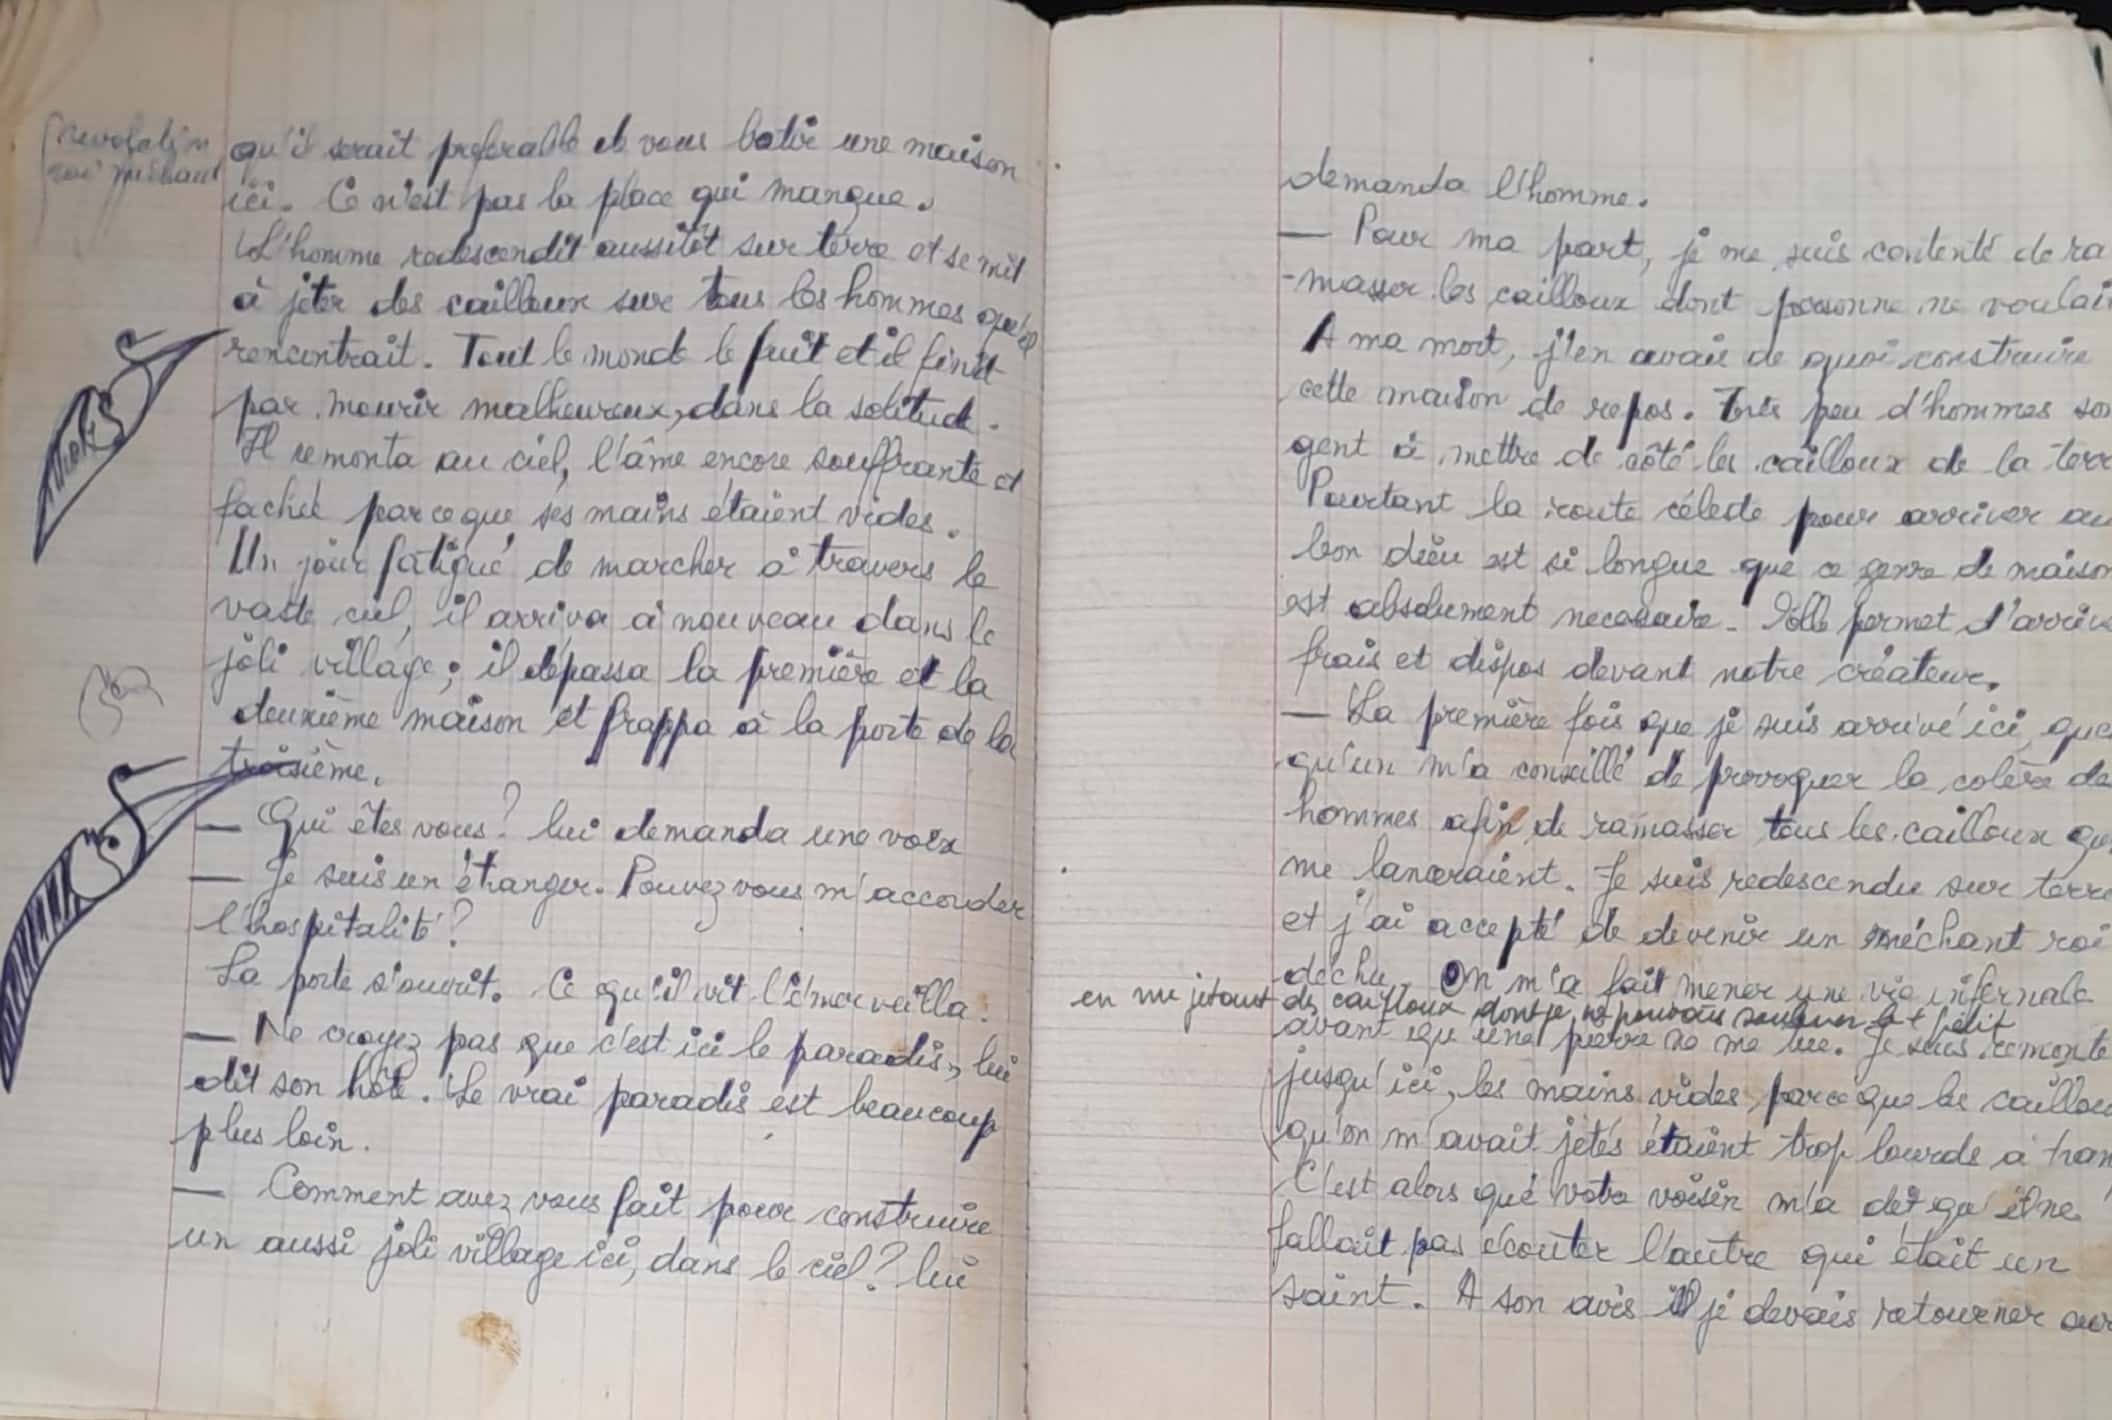 qu'il serait preferable de vous batir une maison
ici. Ce n'est pas la place qui manque.
L'homme redescendit aussitôt sur terre et se mit
à jeter des cailloux sur tous les hommes qu'il
rencontrait. Tout le monde le fuit et il finit
par mourir malheureux, dans la solitude.
Il remonta au ciel, l'âme encore souffrante et
fachée parce que ses mains étaient vides.
Un jour fatigué de marcher à travers le
vaste ciel, il arriva à nouveau dans le
joli village; il dépassa la première et la
deuxième maison et frappa à la porte de la
troisième.
— Qui êtes vous? lui demanda une voix
— Je suis un étranger. Pouvez vous m'accorder
l'hospitalité?
La porte s'ouvrit. Ce qu'il vit l'émerveilla.
— Ne croyez pas que c'est ici le paradis, lui
dit son hôte. Le vrai paradis est beaucoup
plus loin.
— Comment avez vous fait pour construire
un aussi joli village ici, dans le ciel? lui
demanda l'homme.
— Pour ma part, je me suis contenté de ra
-masser les cailloux dont personne ne voulai
A ma mort, j'en avais de quoi construire
cette maison de repos. Très peu d'hommes son
gent à mettre de côté les cailloux de la terr
Pourtant la route céleste pour arriver au
bon dieu est si longue que ce genre de maison
est absolument necessaire. Elle permet d'arrive
frais et dispos devant notre créateur.
— La première fois que je suis arrivé ici, quel
qu'un m'a conseillé de provoquer la colère de
hommes afin de ramasser tous les cailloux qu
me lanceraient. Je suis redescendu sur terre
et j'ai accepté de devenir un méchant roi
déchu. On m'a fait mener une vie infernale
en me jetant des cailloux dont je ne pouvais soulever le + petit
avant qu'une pierre ne me tue. Je suis remonté
jusqu'ici, les mains vides, parce que les caillou
qu'on m'avait jetés étaient trop lourds à tran
C'est alors que votre voisin m'a dit qu'il ne
fallait pas écouter l'autre qui était un
saint. A son avis je devais retourner sur